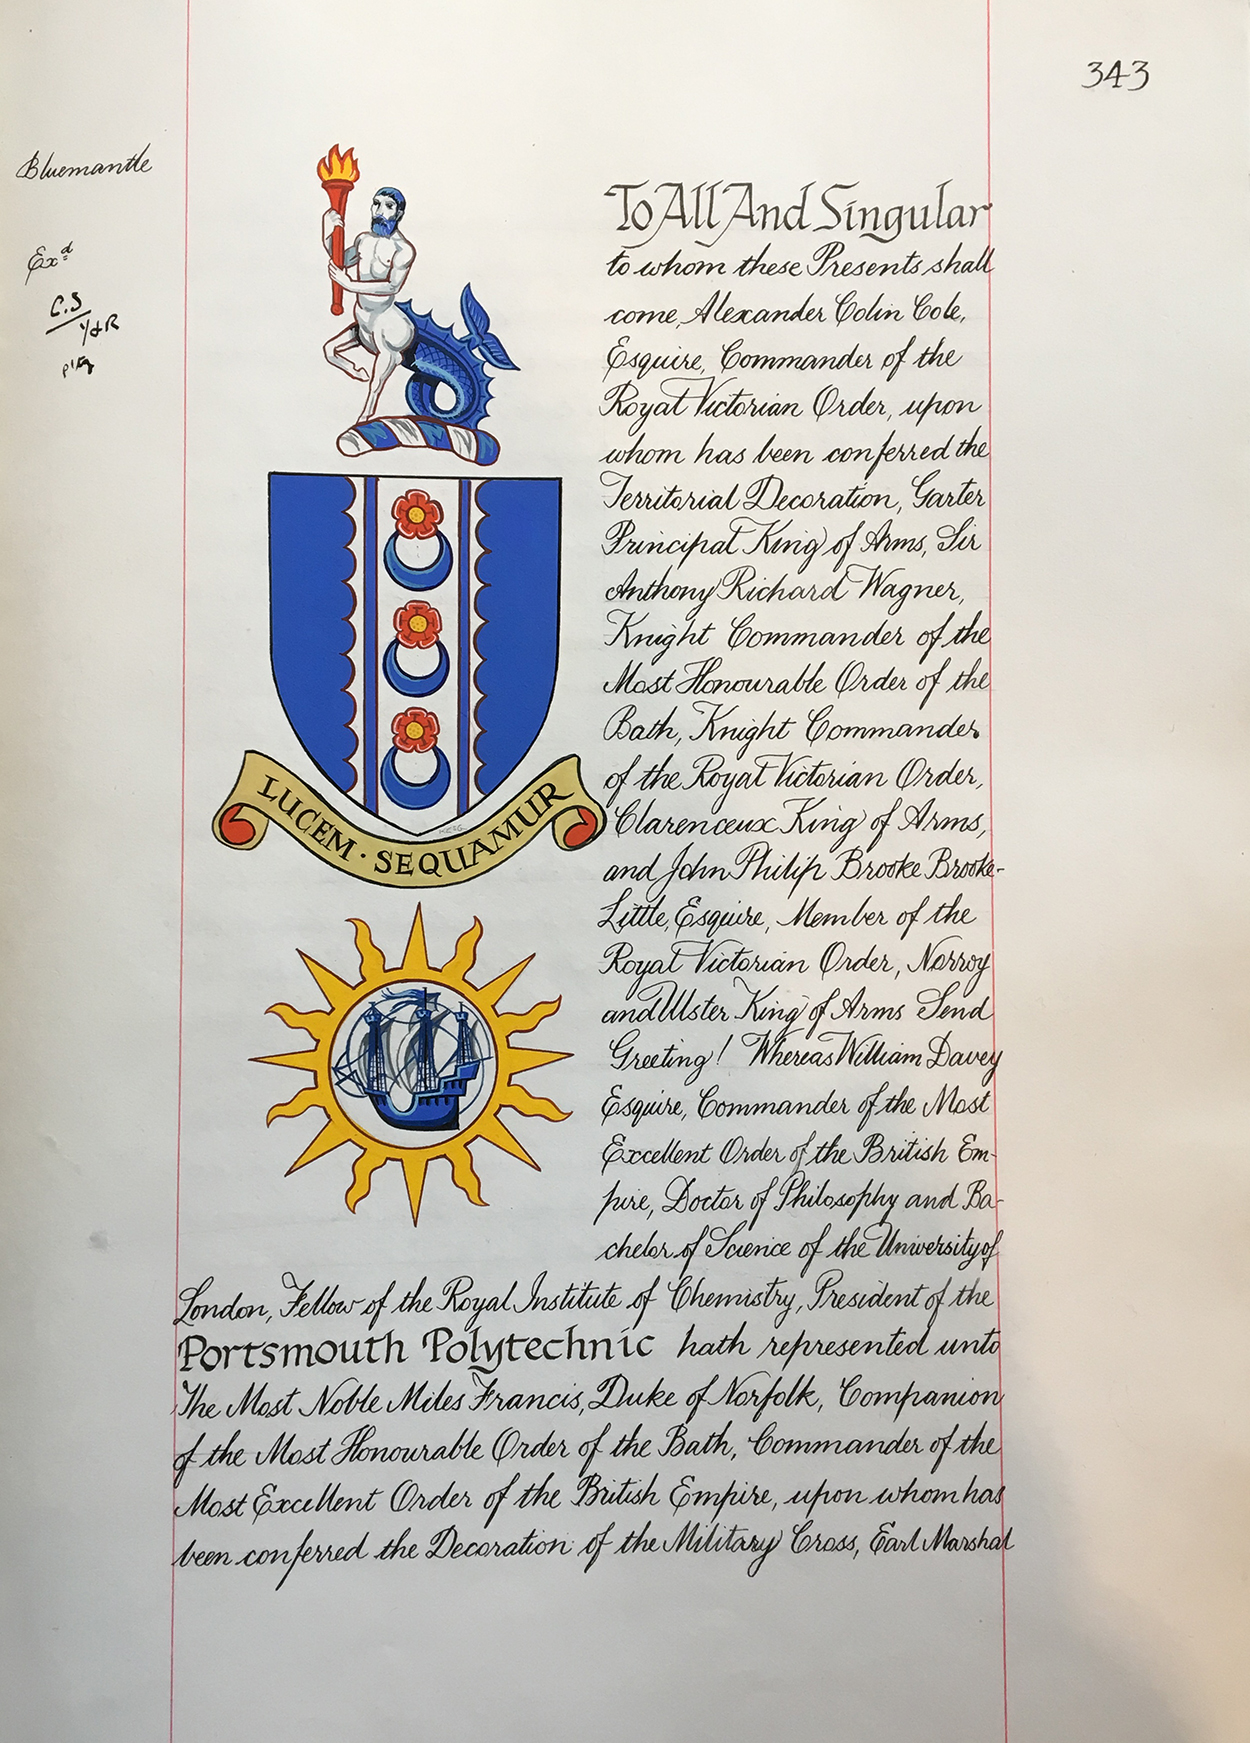 343
Bluemantle
Exd
C.S
Y&R
To All And Singular
to whom these Presents shall
come, Alexander Colin Cole,
Esquire, Commander of the
Royal Victorian Order, upon
whom has been conferred the
Territorial Decoration, Garter
Principal King of Arms, Sir
Anthony Richard Wagner,
Knight Commander of the
Most Honourable Order of the
Bath, Knight Commander
of the Royal Victorian Order,
Clarenceux King of Arms,
and John Philip Brooke Brooke-
Little, Esquire, Member of the
Royal Victorian Order, Norroy
and Ulster King of Arms Send
Greeting! Whereas William Davey
Esquire, Commander of the Most
Excellent Order of the British Em-
pire, Doctor of Philosophy and Ba-
chelor of Science of the University of
London, Fellow of the Royal Institute of Chemistry, President of the
Portsmouth Polytechnic hath represented unto
The Most Noble Miles Francis, Duke of Norfolk, Companion
of the Most Honourable Order of the Bath, Commander of the
Most Excellent Order of the British Empire, upon whom has
been conferred the Decoration of the Military Cross, Earl Marshal
LUCEM · SEQUAMUR